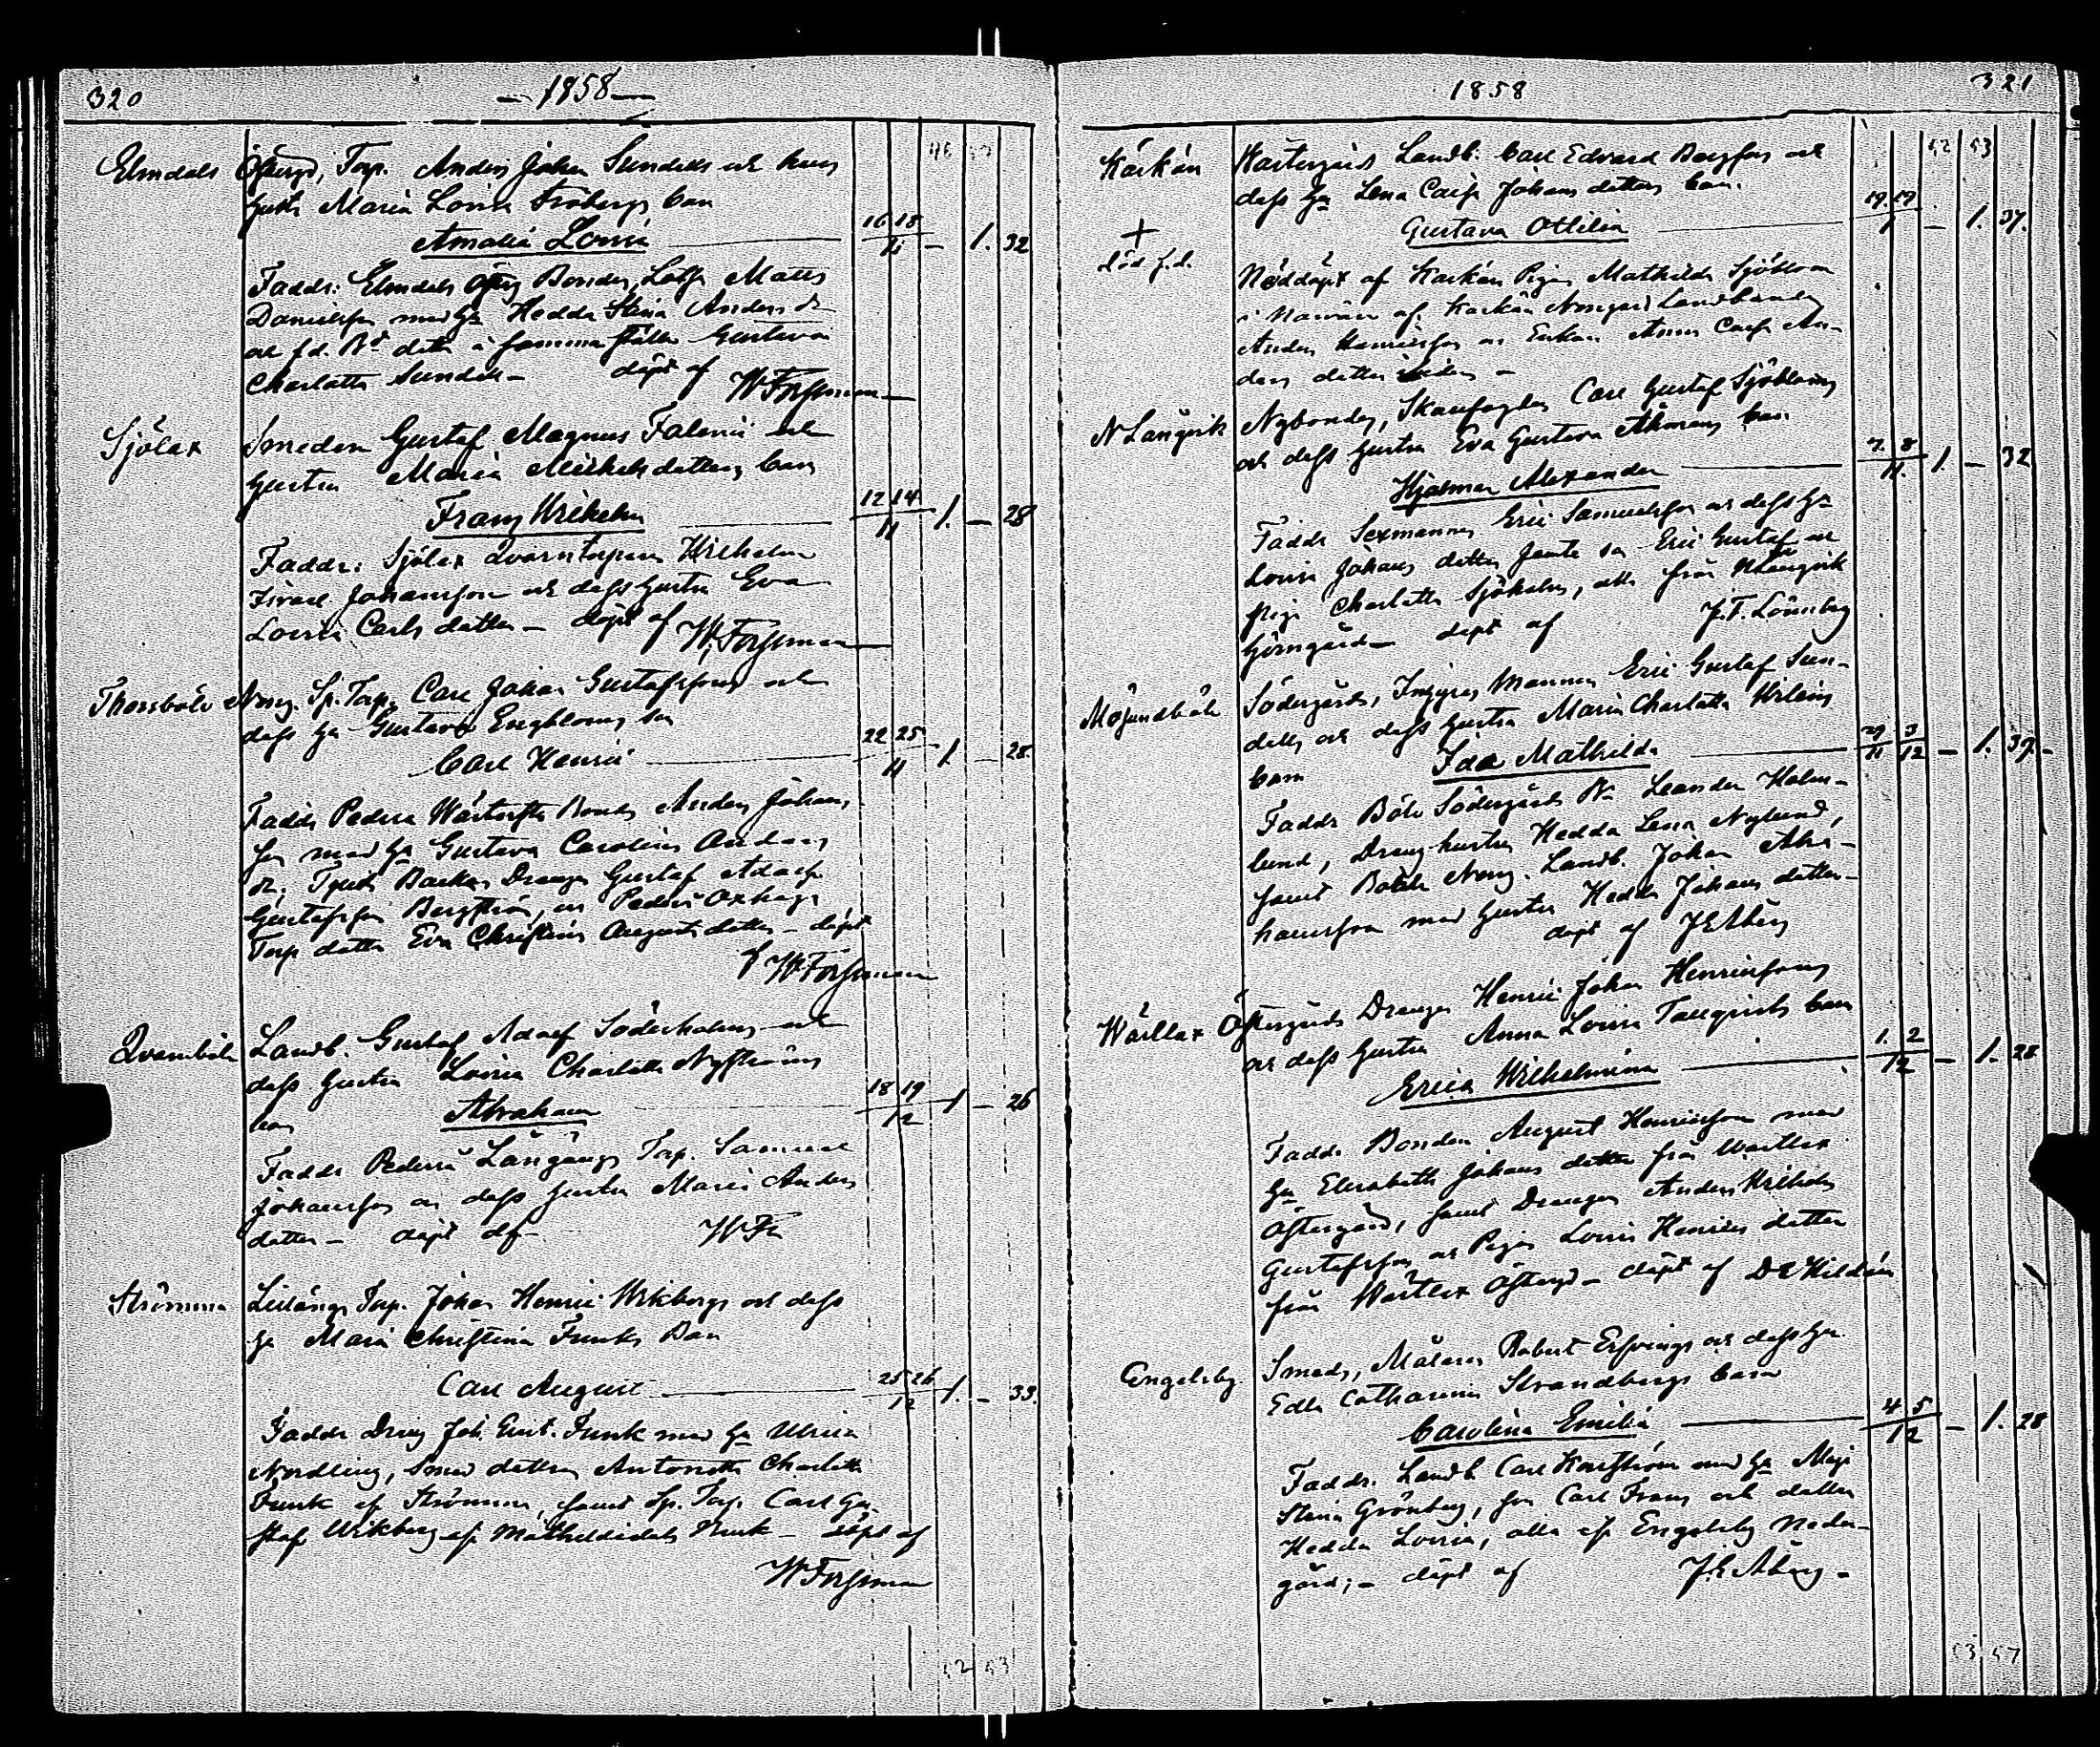 320
— 1858 —
46
Elmdals Öfvergd, Torp. Anders Johan Sundells och hans
hustr Maria Lovisa Frobergs barn
Amalia Lovisa 16 18 / 11 — 1. 32
Faddr: Elmdals Bonden, Matts
Danielsson med hu Hedda Stina Anders dr
och fd. Bd dottr i samma ställe Gustava
Charlotta Sundell — döpt af W Forssman
Sjölax Smeden Gustaf Magnus Faleni och
hustru Maria Michelsdotters barn
Franz Wilhelm 12 14 / 11 1. — 28
Faddr: Sjölax Qvarntorparn Wilhelm
Israel Johansson och dess hustru Eva
Lovisa Carls dotter — döpt af W. Forssman
Thorsböle Norrg. Sp. Torp. Carl Johan Gustafssons och
dess hu Gustava Engbloms son
Carl Henric 22 25 / 11 1. — 28.
Faddr Pederså Bonden Anders Johans
son med hu Gustava Carolina Anders
dr; Backa Drengen Gustaf Adolf
Gustafsson Bergström, och Pederså Oxhaga
Torp dotter Eva Christina Augusts dotter — döpt
af W. Forssman
Qvarnböle Landb. Gustaf Adolf Söderholms och
dess hustru Lovisa Charlotta Nyströms
barn Abraham 18 19 / 12 1 — 26
Faddr Pederså Långängs Torp. Samuel
Johansson och dess hustru Maria Anders
dotter — döpt af W. Fn
Strömma Lillängs Torp. Johan Henric Wikbergs och dess
hu Maria Christina Funks Barn
Carl August 25 26 / 12 1. — 33.
Faddr Dreng Joh. Gust. Funk med hu Ulrica
Nordling, Smed dottren Antonetta Charlotta
Funk af Strömma, samt Sp. Torp. Carl Gu-
staf Wikberg af Mathildedals Bruk — döpt af
W Forssman
52 53
1858
321
52 53
Kärkän Wästergårds Landb. Carl Edvard Bergfors och
dess hu Lena Caisa Johans dotters barn.
+ Gustava Ottilia 19. 19 / 11 — 1. 37.
död f.d. Nöddöpt af Karkän Pigan Mathilda Sjöblom
i närvaro af Karkän Norrgård Landbonden
Anders Henricsson och Enkan Anna Caisa An-
ders dotter —
N Långvik Nybondes, Skarfogles Carl Gustaf Sjöbloms
och dess hustru Eva Gustava Åkmans barn
Hjalmar Alexander 7. 8 / 11. 1. — 32
Faddr Sexmannen Eric Samuelsson och dess hu
Lovisa Johans dotter jemte son Eric Gustaf och
pig. Charlotta Sjöholm, alla från N Långvik
Görngård — döpt af J. F. Lönnberg
Mösundböle Södergårds, Inhyses Mannen Eric Gustaf Sun-
dells och dess hustru Maria Charlotta Wilens
barn Ida Mathilda 29 / 11 3 / 12 — 1. 37. —
Faddr Böle Södergårds Bn Leander Holm-
lund, Dreng hustru Hedda Lena Nylund,
samt Böle Norrg. Landb. Johan Abra-
hamsson med hustru Hedda Johans dotter —
döpt af J E Åberg
Wärtlax Östergårds Drengen Henric Johan Henricssons
och dess hustru Anna Lovisa Tanqvists barn
Erica Wilhelmina 1. 2 / 12 — 1. 28
Faddr Bonden August Henricsson med
hu Elisabeth Johans dotter från Wärtlax
Östergård, samt Drengen Anders Wilhelm
Gustafsson och Pigan Lovisa Henrics dotter
från Wärtlax Östergd — döpt af D E Hildén
Engelsby Smeds, Målaren Robert Erfvings och dess hu
Edla Catharina Strandbergs barn
Carolina Emilia 4 5 / 12 — 1. 28
Faddr. Landb. Carl Karlström med hu Maja
Stina Grönberg, son Carl Franz och dotter
Hedda Lovisa, alla af Engelsby Neder-
gård; — döpt af J. E Åberg —
53 57